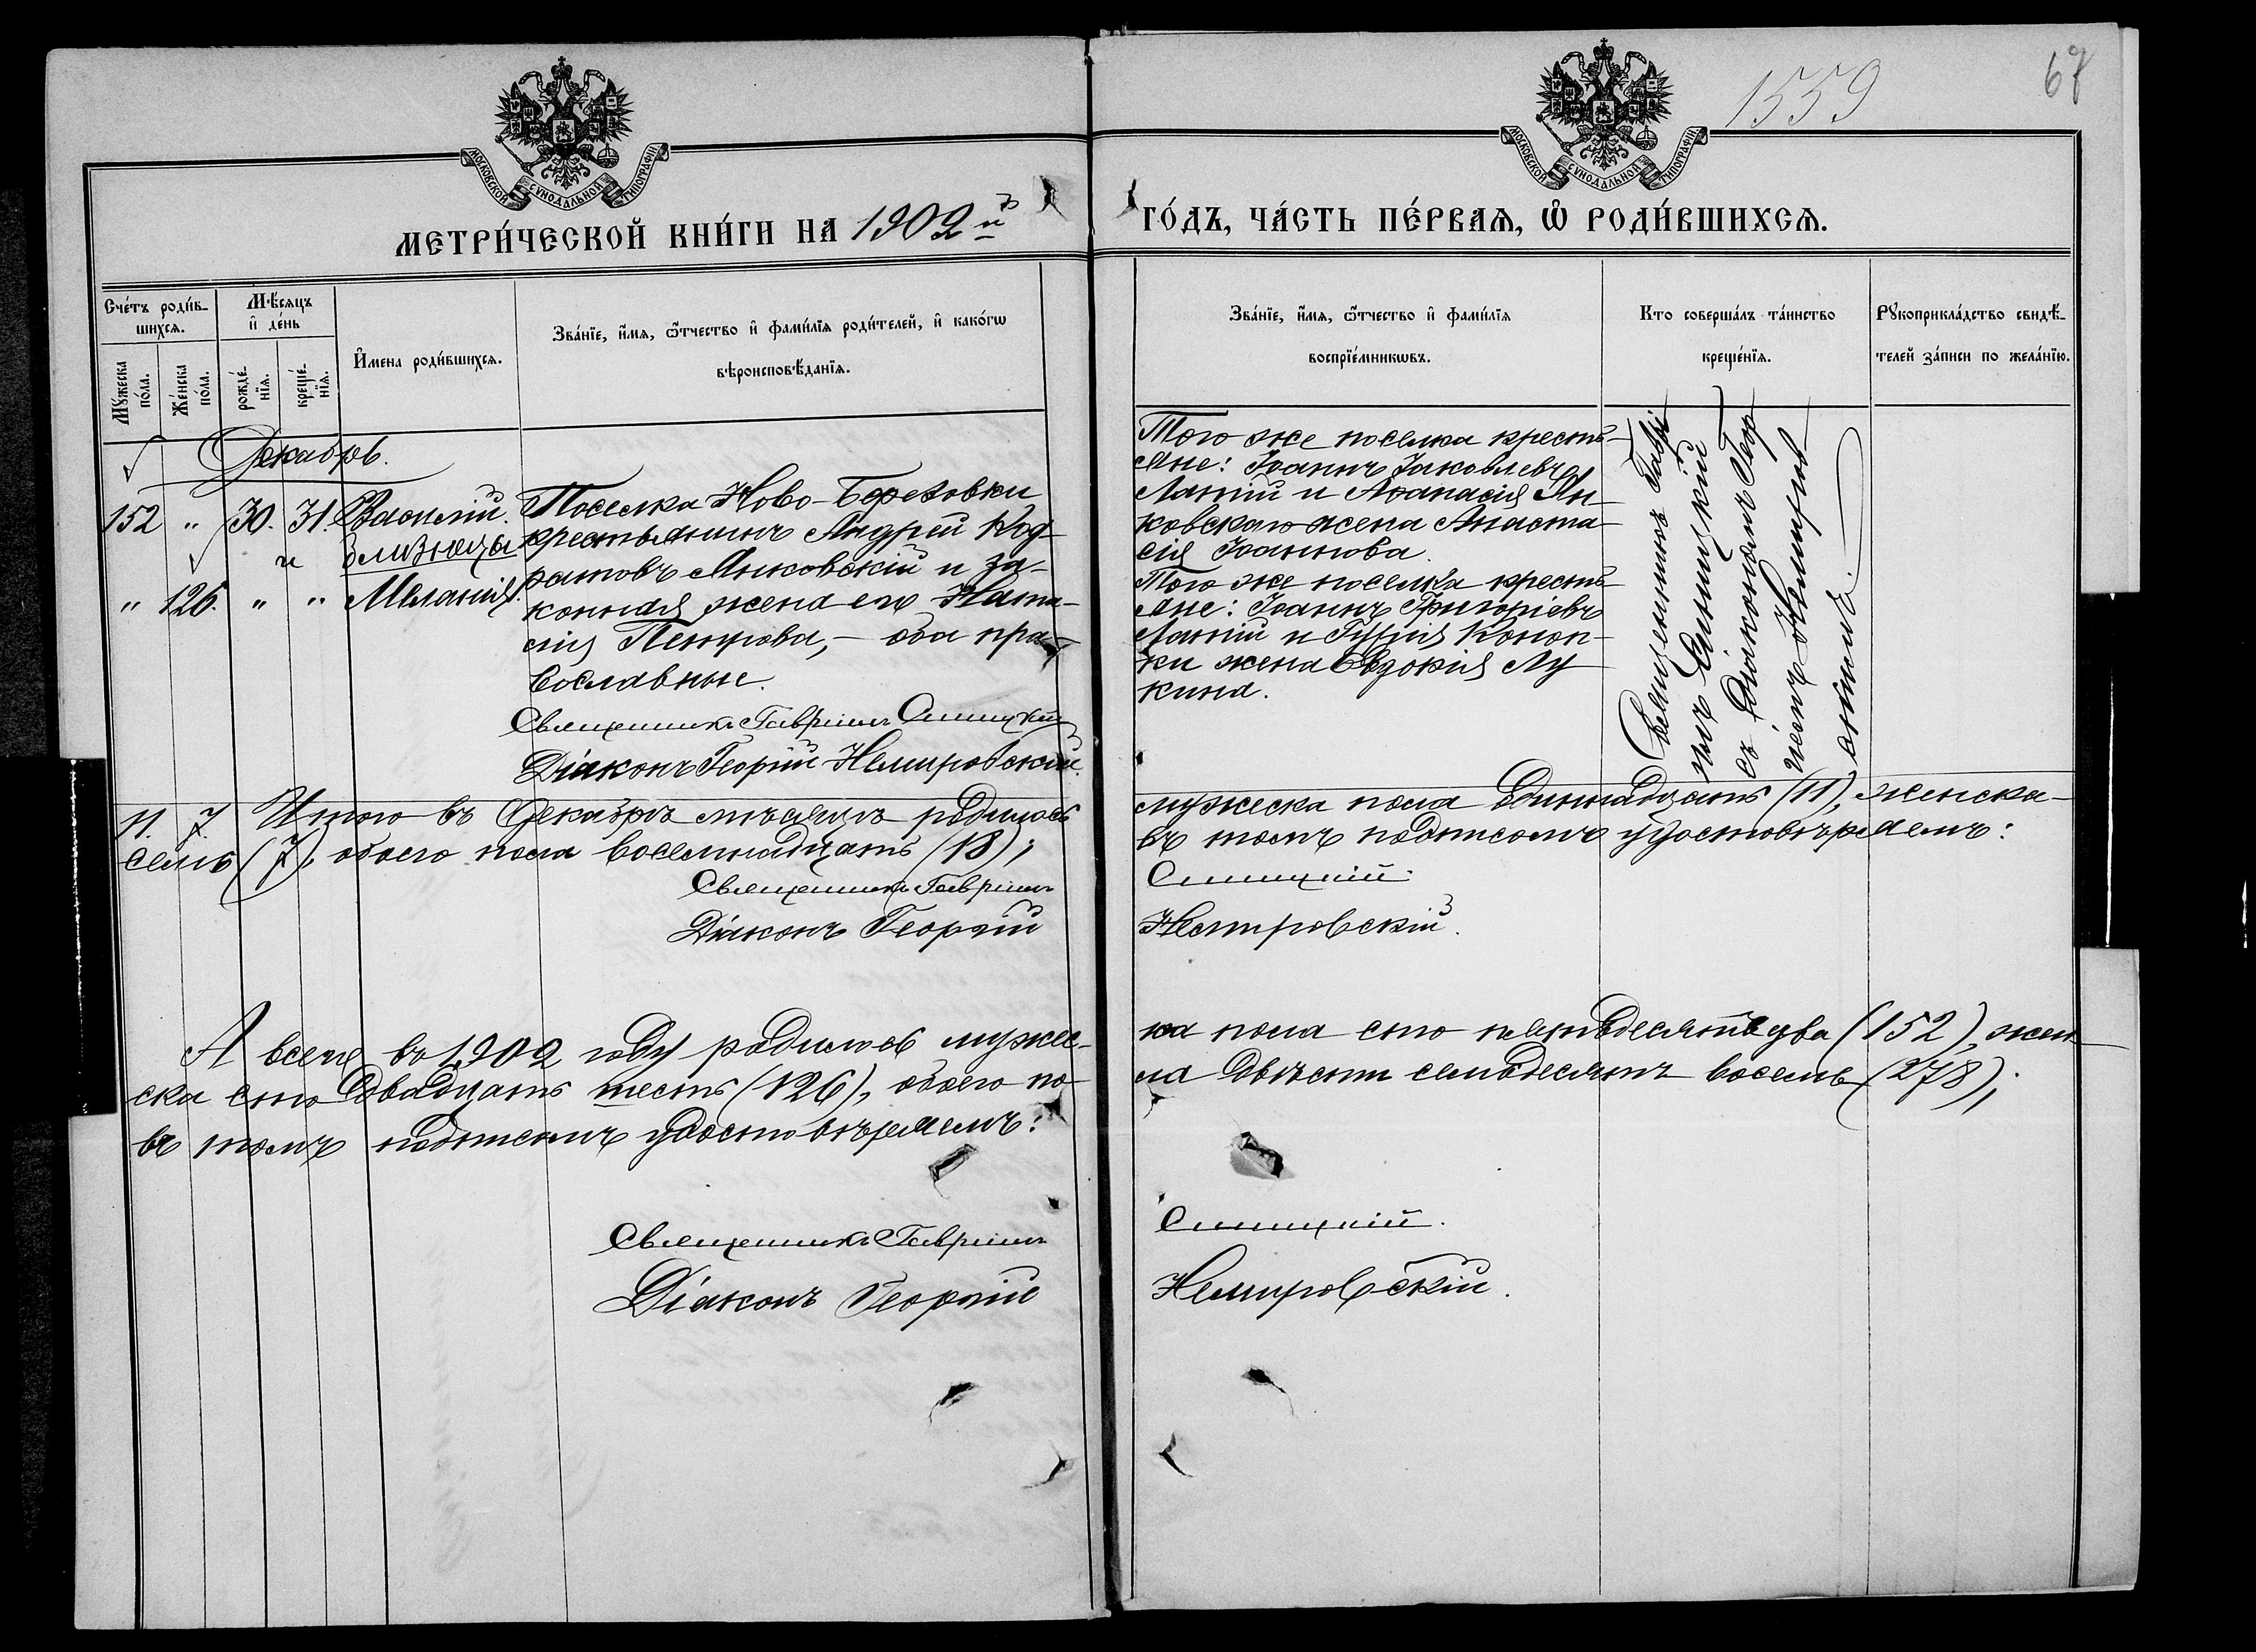 1559
67
МОСКОВСКОЙ СѴНОДАЛЬНОЙ ТИПОГРАФІИ
МОСКОВСКОЙ СѴНОДАЛЬНОЙ ТИПОГРАФІИ
МЕТРИ́ЧЕСКОЙ КНИ́ГИ НА 1902й
ГО́ДЪ, ЧА́СТЬ ПЕ́РВАѦ, Ѽ РОДИ́ВШИХСѦ.
Сче́тъ роди́в-
шихсѧ.
Мꙋ́жеска по́ла.
Же́нска по́ла.
Мѣ́сѧцъ
и҆ де́нь
рожде́-
нїѧ.
креще́-
нїѧ.
И҆мена̀ роди́вшихсѧ.
Зва́нїе, и҆́мѧ, ѻ҆́тчество и҆ фами́лїѧ роди́телей, и҆ како́гѡ
вѣроисповѣ́данїѧ.
Зва́нїе, и҆́мѧ, ѻ҆́тчество и҆ фами́лїѧ
воспрїе́мникѡвъ.
Кто̀ соверша́лъ та́инство
креще́нїѧ.
Рꙋкоприкла́дство свидѣ́-
телей за́писи по жела́нїю.
Декабрь.
152 " 30. 31. Василій.
и близнецы
" 126. " " Меланія.
Поселка Ново-Березовки
крестьянинъ Андрей Код-
ратовъ Янковскій и за-
конная жена его Ната-
лія Петрова, - оба пра-
вославные.
Священникъ Гавріилъ Синицкій
Діаконъ Георгій Немировскій.
Того же поселка кресть-
яне: Іоаннъ Іаковлевъ
Лантій и Аѳанасія Ян-
ковскаго жена Анаста-
сія Іоаннова.
Того же поселка кресть-
яне: Іоаннъ Григоріевъ
Лантій и Гурія Коноп-
ки жена Евдокія Лу
кина.
Священникъ Гаврі
илъ Синицкій
съ Діакономъ Геор
гіемъ Немиров
скимъ.
11. 7. Итого въ Декабрѣ мѣсяцѣ родилось
мужеска пола одиннадцать (11), женска
семь (7), обоего пола восемнадцать (18);
въ томъ подписомъ удостовѣряемъ:
Священникъ Гавріилъ
Синицкій.
Діаконъ Георгій
Немировскій.
А всего въ 1902 году родилось мужес-
ка пола сто пятьдесятъ два (152), жен-
ска сто двадцать шесть (126), обоего по-
ла двѣсти семьдесятъ восемь (278);
въ томъ подписомъ удостовѣряемъ:
Священникъ Гавріилъ
Синицкій.
Діаконъ Георгій
Немировскій.